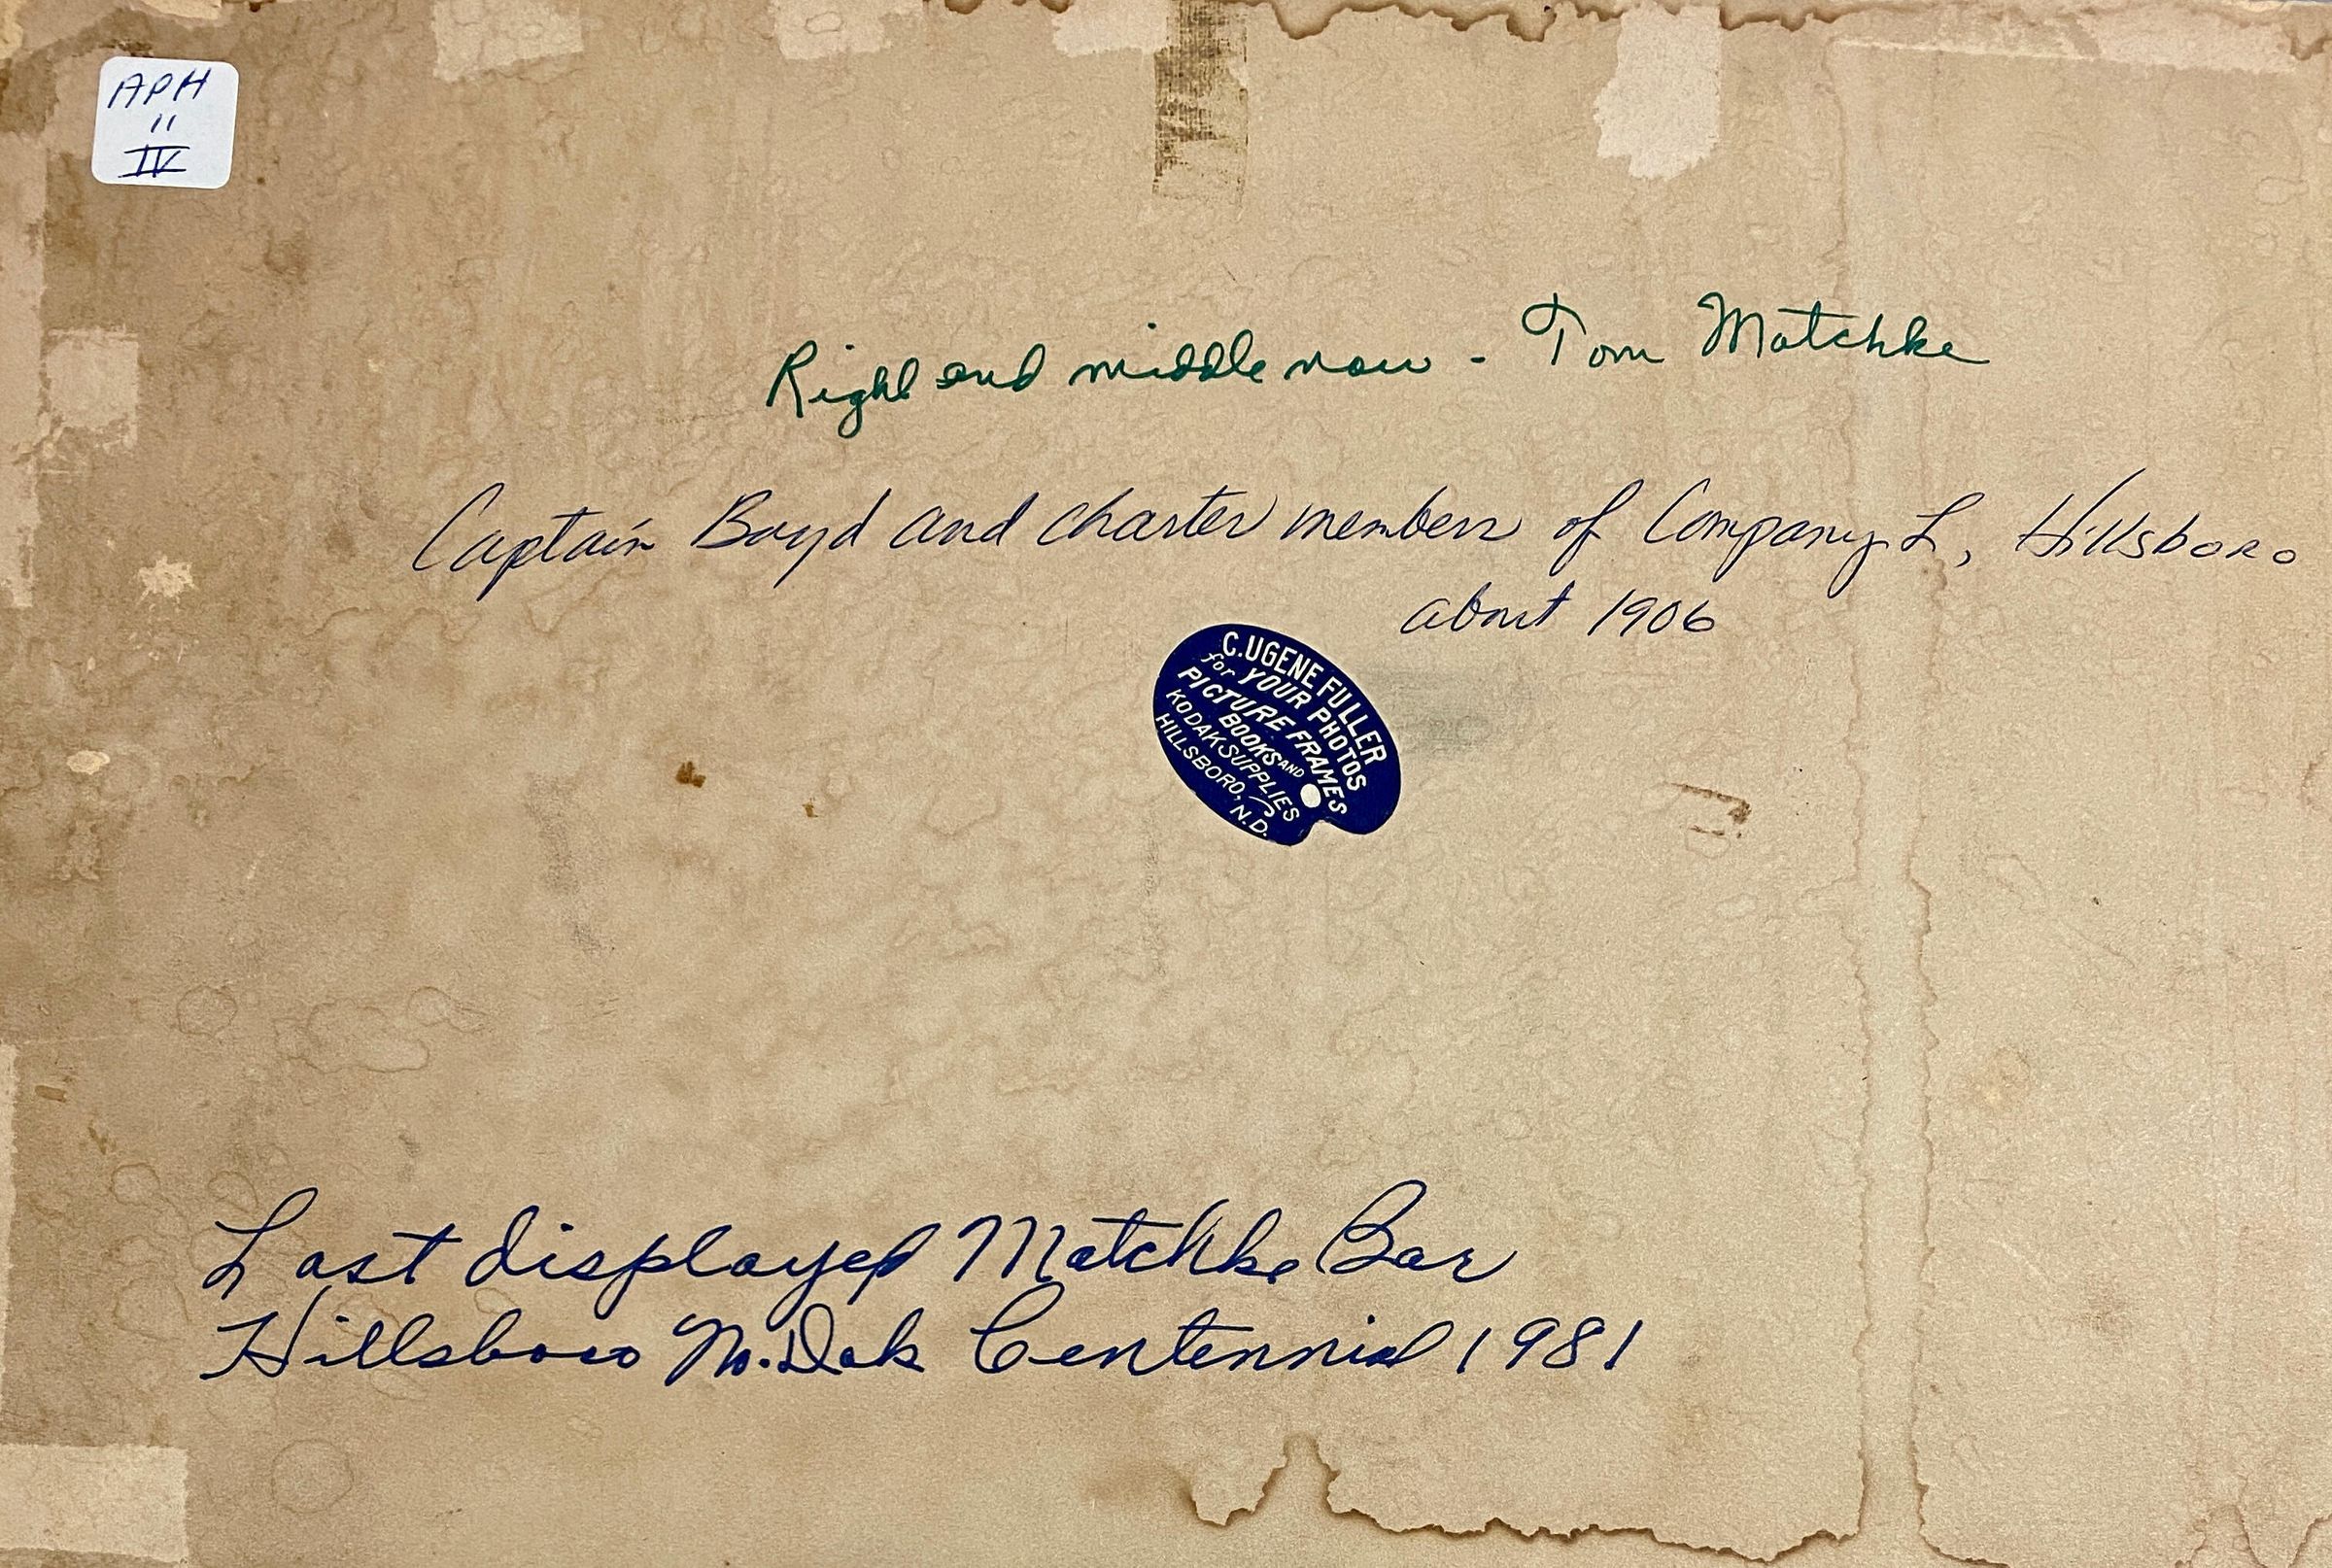 APH
11
IV
Right end middle row - Tom Matchke
Captain Boyd and charter members of Company L, Hillsboro
about 1906
C. UGENE FULLER
for YOUR PHOTOS
PICTURE FRAMES
BOOKS AND
KODAK SUPPLIES
HILLSBORO, N.D.
Last displayed Matchke Bar
Hillsboro No. Dak Centennial 1981